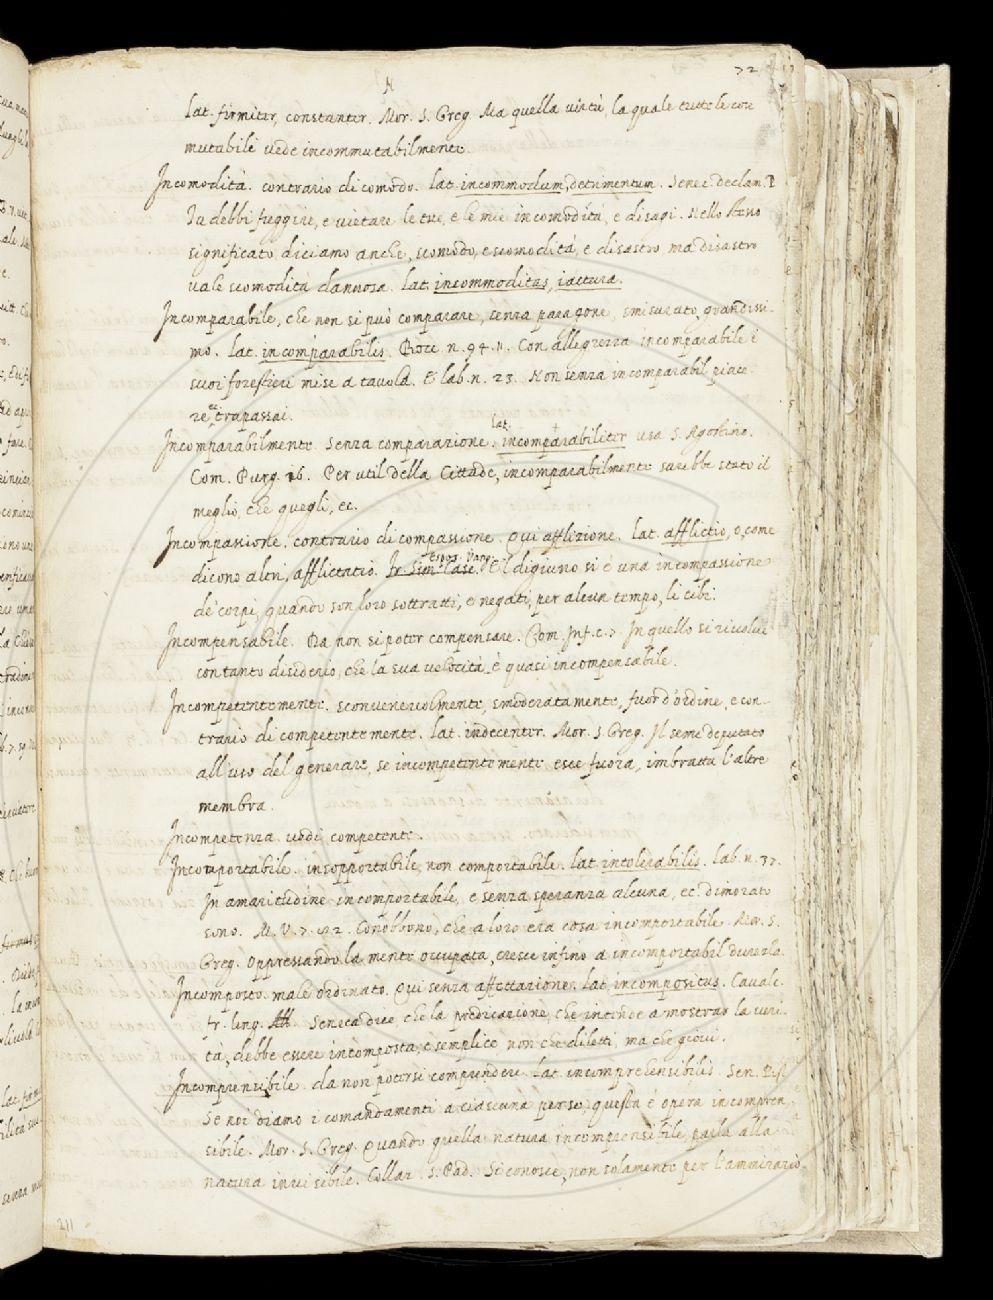 N
72
lat. firmiter, constanter. Mor. S. Greg. Ma quella virtù, la quale tutte le cose
mutabili vede incommutabilmente.
Incomodità. contrario di comodo. lat. incommodum, detrimentum. Senec. declam. P
Tu debbi fuggire, e vietare le tue, e le mie incomodità, e disagi. Nello stesso
significato diciamo anche, scomodo, e scomodità, e disastro, ma disastro
vale scomodità dannosa. lat. incommoditas, iactura.
Incomparabile, che non si può comparare, senza paragone, smisurato, grandissi-
mo. lat. incomparabilis. Bocc. n. 94. 11. Con allegrezza incomparabile i
suoi forestieri mise a tavola. E lab. n. 23. Non senza incomparabil piace-
re trapassai.
Incomparabilmente. Senza comparazione. lat. incomparabiliter usa S. Agostino.
Com. Purg. 16. Per util della Cittade, incomparabilmente sarebbe stato il
meglio, che quegli, ec.
Incompassione. contrario di compassione. Qui afflizione. lat. afflictio, o, come
dicono altri, afflictatio. Fr. Sim. Casc. Espos. Vang. E'l digiuno si è una incompassione
de' corpi, quando son loro sottratti, e negati, per alcun tempo, li cibi.
Incompensabile. Da non si poter compensare. Com. Inf. c. 7. In quello si rivolve
con tanto disiderio, che la sua velocità è quasi incompensabile.
Incompetentemente. sconvenevolmente, smoderatamente, fuor d'ordine, e con-
trario di competentemente. lat. indecenter. Mor. S. Greg. Il seme deputato
all'uso del generare, se incompetentemente esce fuora, imbratta l'altre
membra.
Incompetenza. vedi competente.
Incomportabile. insopportabile, non comportabile. lat. intolerabilis. lab. n. 37.
In amaritudine incomportabile, e senza speranza alcuna, ec. dimorato
sono. M. V. 7. 92. Conobbono, che a loro era cosa incomportabile. Mor. S.
Greg. Oppressando la mente occupata, cresce infino a incomportabil durezza.
Incomposto. male ordinato. Qui senza affettazione. lat. incompositus. Cavalc.
fr. ling. Seneca dice che la predicazione, che intende a mostrar la veri-
tà, debbe essere incomposta, e semplice, non che diletti, ma che giovi.
Incomprensibile. da non potersi comprendere. lat. incomprehensibilis. Sen. Pist.
Se noi diamo i comandamenti a ciascuna per se, questa è opera incompren-
sibile. Mor. S. Greg. Quando quella natura incomprensibile parla alla
natura invisibile. Collaz. S. Pad. Si conosce, non solamente per l'ammirazio
211